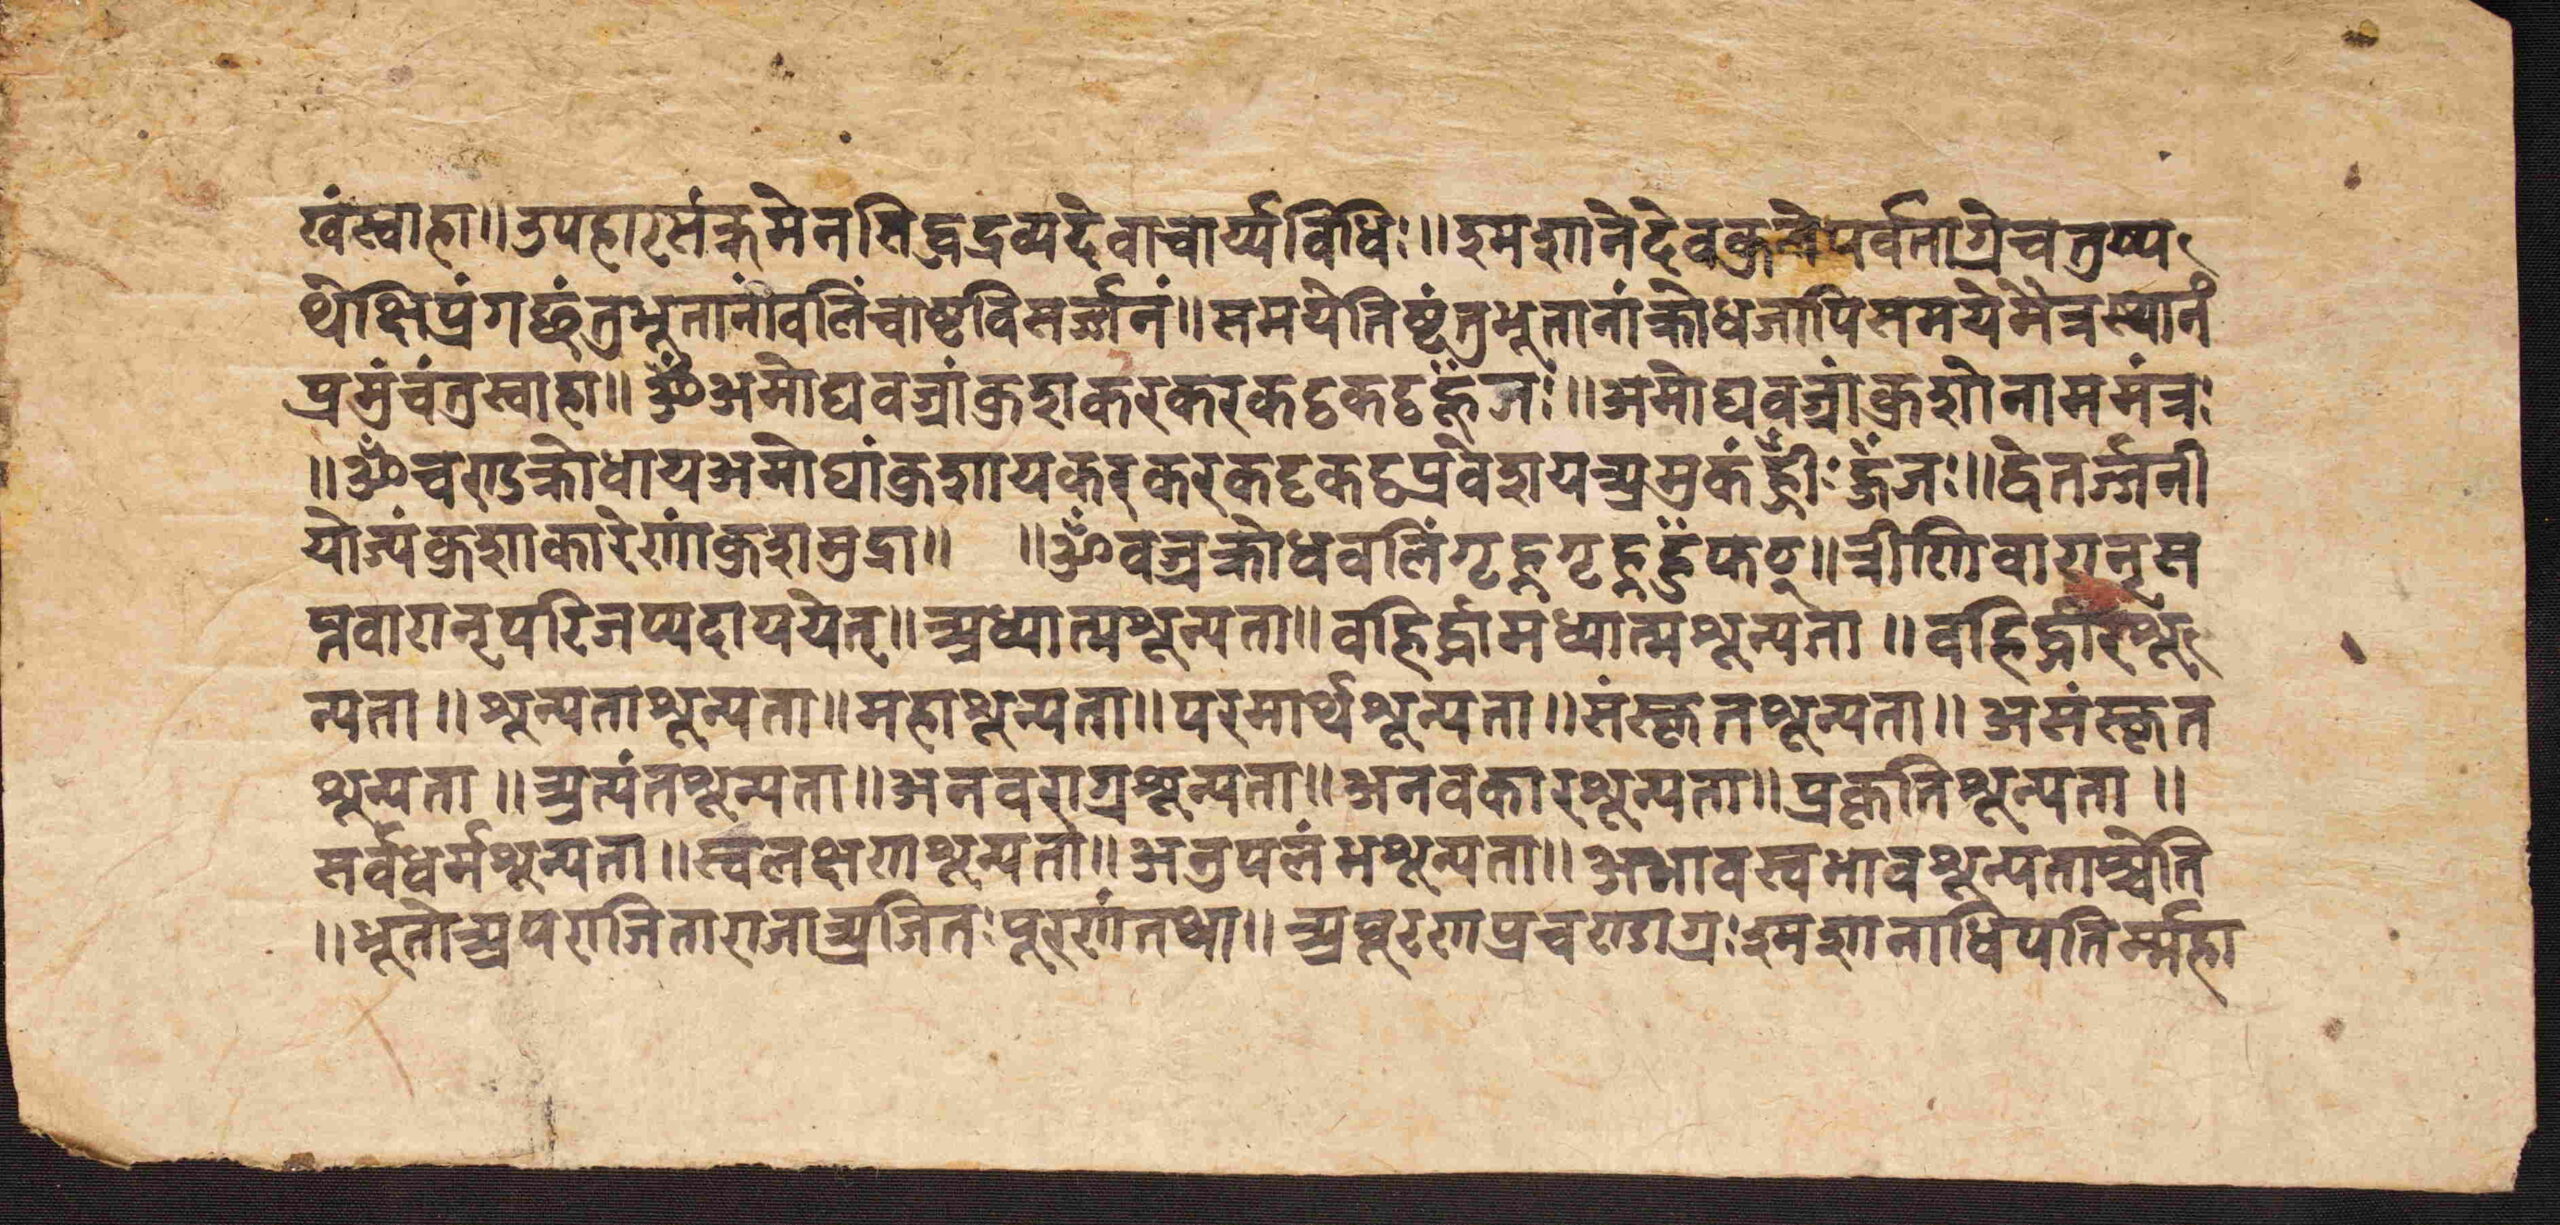 खंस्वाहा॥उपहारसंक्रमेनतिद्वद्रव्यदेवाचार्य्यविधिः॥इमशानेदेवकुलेपर्वताग्रेचतुष्प
थेक्षिप्रंगछंतुभूतानांवलिंचाष्टविसर्ज्जनं॥समयेतिष्टंतुभूतानांक्रोधजापिसमयेमैत्रस्थानं
प्रमुंचंतुस्वाहा॥ॐअमोघवज्रांकुशकरकरकट्टकट्टह्रूंजः॥अमोघवज्रांकुशोनाममंत्रः
॥ॐचण्डक्रोधायअमोघांकुशायकरकरकट्टकट्टप्रवेशयअमुकंह्रीःह्रूंजः॥द्वेतर्ज्जनी
योज्यंकुशाकारेणांकुशमुद्रा॥ ॥ॐवज्रक्रोधवलिंगृह्णगृह्णहूंफट्॥त्रीणिवारान्स
प्तवारान्परिजप्यदापयेत्॥अध्यात्मशून्यता॥वहिर्द्धामध्यात्मशून्यता॥वहिर्द्धारशू
न्यता॥शून्यताशून्यता॥महाशून्यता॥परमार्थशून्यता॥संस्कृतशून्यता॥असंस्कृत
शून्यता॥अत्यंतशून्यता॥अनवराग्रशून्यता॥अनवकारशून्यता॥प्रकृतिशून्यता॥
सर्वधर्मशून्यता॥स्वलक्षणशून्यता॥अनुपलंभशून्यता॥अभावस्वभावशून्यताश्चेति
॥भूतोअपराजिताराजाअजितःपूरणंतथा॥अपूरणप्रचण्डाग्रःइमशानाधिपतिर्म्महा